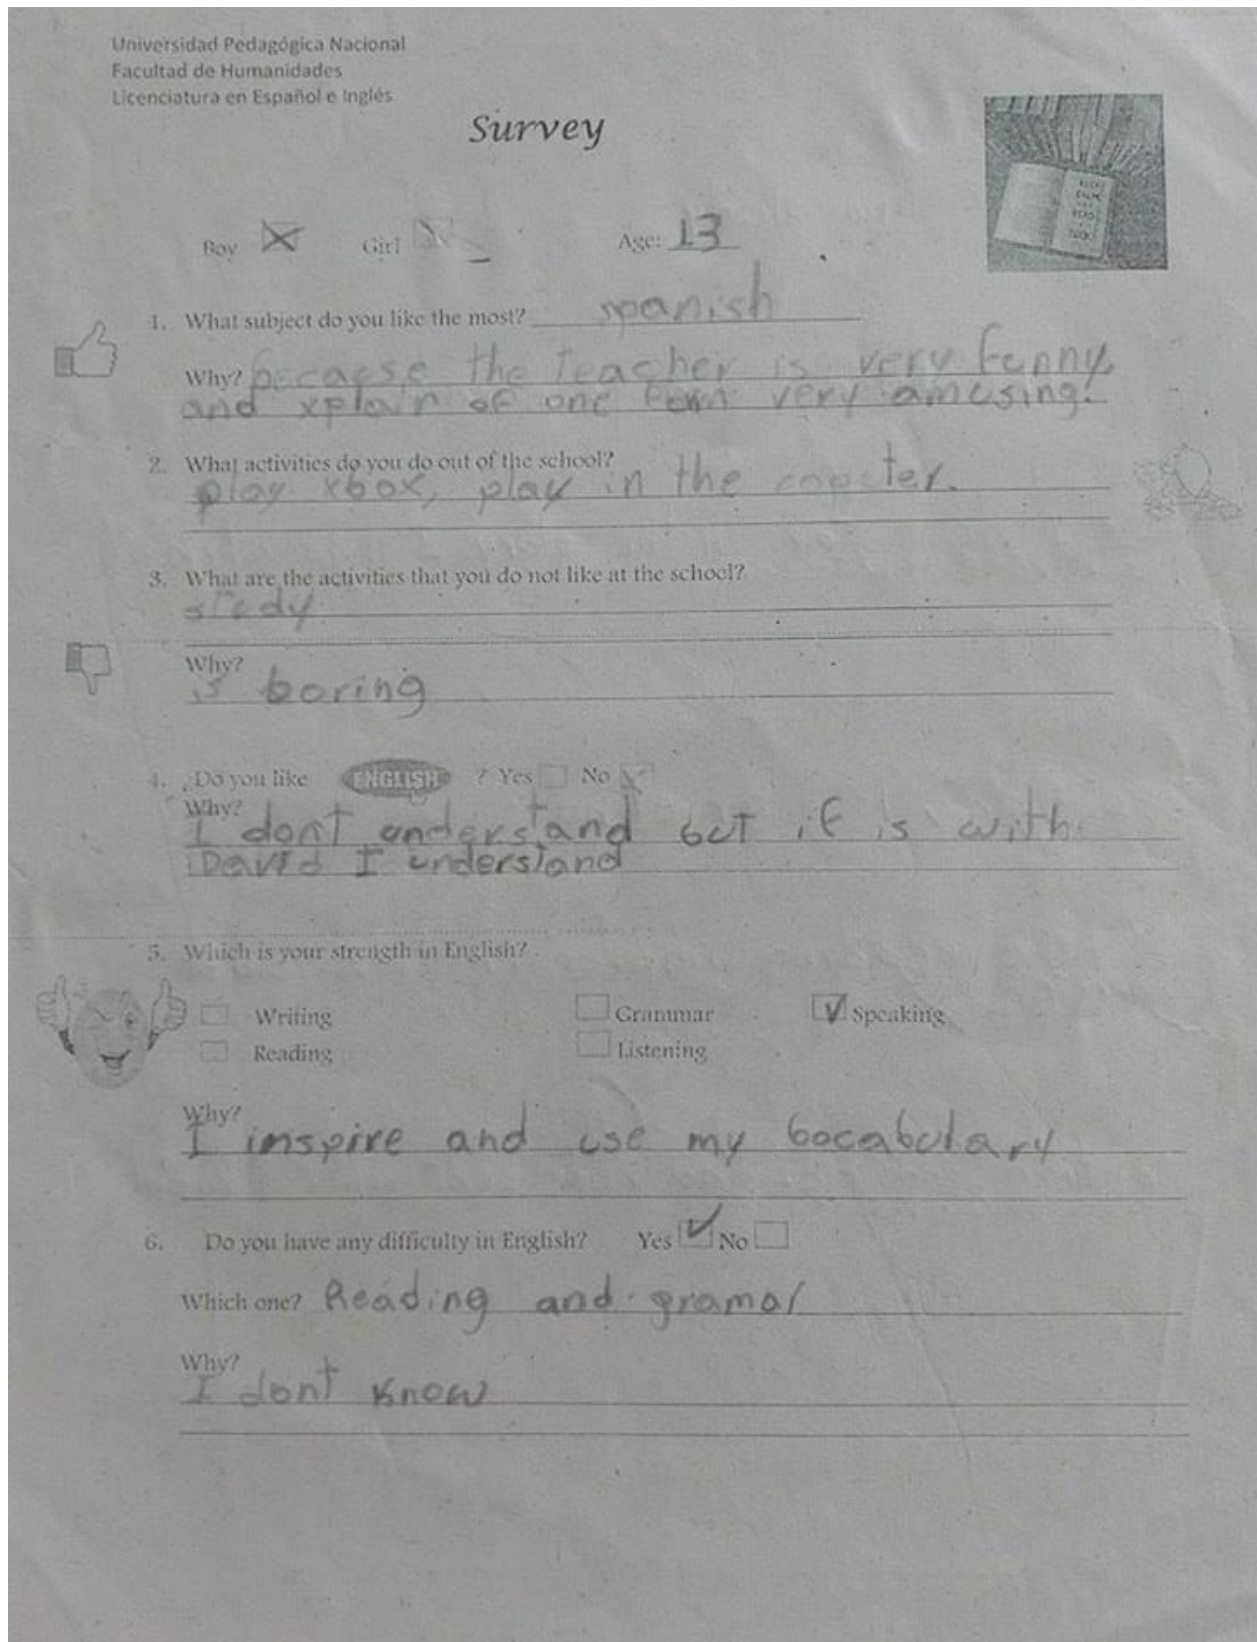 Universidad Pedagógica Nacional
Facultad de Humanidades
Licenciatura en Español e Inglés
Survey
Boy Girl Age: 13
1. What subject do you like the most? spanish
Why? becaese the teacher is very fenny
and xplain of one form very amusing.
2. What activities do you do out of the school?
play xbox, play in the
3. What are the activities that you do not like at the school?
stedy
Why?
is boring
4. ¿Do you like ENGLISH ? Yes No
Why?
I dont understand but if is with
David I understand
5. Which is your strength in English?
Writing Grammar Speaking
Reading Listening
Why?
I inspire and use my bocabulary
6. Do you have any difficulty in English? Yes No
Which one? Reading and gramar
Why?
I dont know